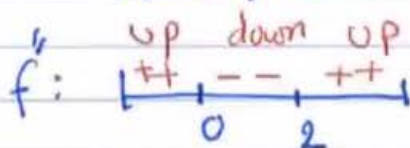 up down up
f": ++ -- ++
0 2